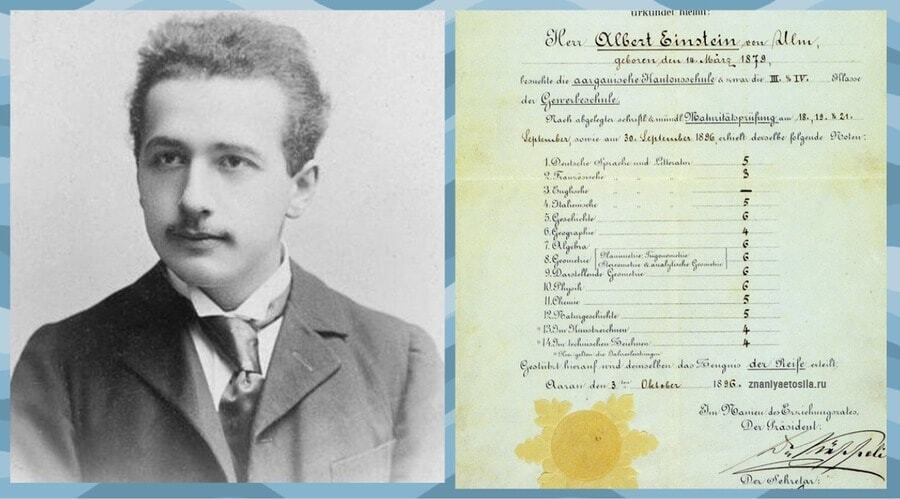 urkundet hiemit:
Herr Albert Einstein von Ulm,
geboren den 14. März 1879,
besuchte die aargauische Kantonsschule & zwar die III. & IV. Klasse
der Gewerbeschule.
Nach abgelegter schriftl. & mündl. Maturitätsprüfung am 18., 19. & 21.
September, sowie am 30. September 1896, erhielt derselbe folgende Noten:
1. Deutsche Sprache und Litteratur 5
2. Französische " " " 3
3. Englische " " " —
4. Italienische " " " 5
5. Geschichte 6
6. Geographie 4
7. Algebra 6
8. Geometrie (Planimetrie, Trigonometrie Stereometrie & analytische Geometrie) 6
9. Darstellende Geometrie 6
10. Physik 6
11. Chemie 5
12. Naturgeschichte 5
*13. Im Kunstzeichnen 4
*14. Im technischen Zeichnen 4
* Hier gelten die Jahresleistungen.
Gestützt hierauf wird demselben das Zeugnis der Reife erteilt.
Aarau den 3ten Oktober 1896. znaniyaetosila.ru
Im Namen des Erziehungsrates,
Der Präsident:
Der Sekretär: